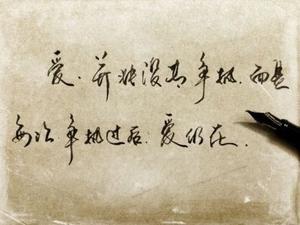 爱.并非没有争执.而是
每次争执过后.爱仍在.